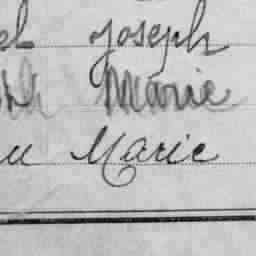 el Joseph
th Marie
au Marie